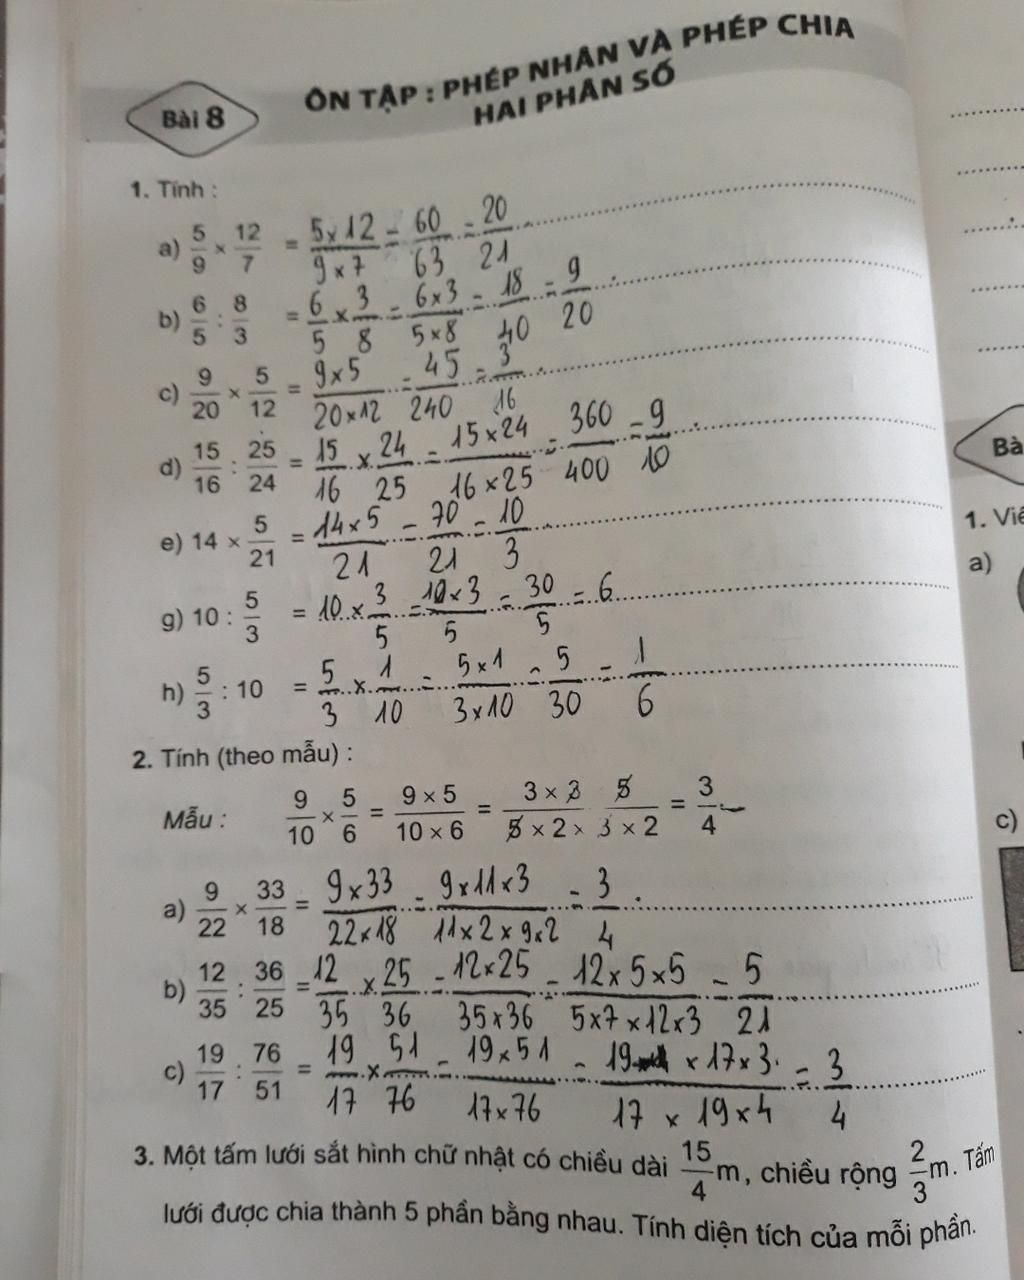 Bài 8
ÔN TẬP : PHÉP NHÂN VÀ PHÉP CHIA
HAI PHÂN SỐ
1. Tính :
a) 5/9 × 12/7 = 5×12/9×7 = 60/63 = 20/21
b) 6/5 : 8/3 = 6/5 × 3/8 = 6×3/5×8 = 18/40 = 9/20
c) 9/20 × 5/12 = 9×5/20×12 = 45/240 = 3/16
d) 15/16 : 25/24 = 15/16 × 24/25 = 15×24/16×25 = 360/400 = 9/10
e) 14 × 5/21 = 14×5/21 = 70/21 = 10/3
g) 10 : 5/3 = 10 × 3/5 = 10×3/5 = 30/5 = 6
h) 5/3 : 10 = 5/3 × 1/10 = 5×1/3×10 = 5/30 = 1/6
2. Tính (theo mẫu) :
Mẫu : 9/10 × 5/6 = 9 × 5/10 × 6 = 3 × 3 5/5 × 2 × 3 × 2 = 3/4
a) 9/22 × 33/18 = 9×33/22×18 = 9×11×3/11×2×9×2 = 3/4
b) 12/35 : 36/25 = 12/35 × 25/36 = 12×25/35×36 = 12×5×5/5×7×12×3 = 5/21
c) 19/17 : 76/51 = 19/17 × 51/76 = 19×51/17×76 = 19 × 17×3/17 × 19×4 = 3/4
3. Một tấm lưới sắt hình chữ nhật có chiều dài 15/4 m, chiều rộng 2/3 m. Tấm
lưới được chia thành 5 phần bằng nhau. Tính diện tích của mỗi phần.
Bà
1. Viế
a)
c)